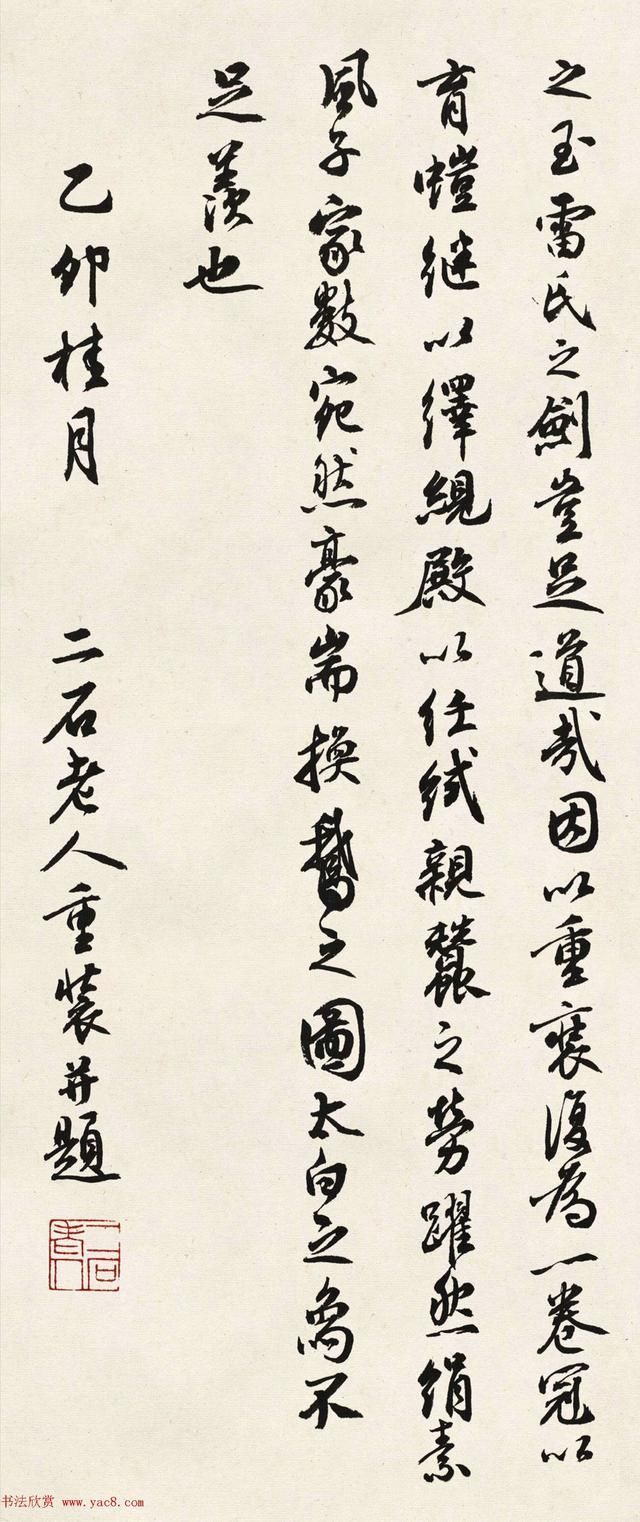 之玉雷氏之劍豈足道哉因以重裝復為一卷冠以
育螘继以繹絸殿以任弑親蠶之勞躍然絹素
風子家數宛然豪耑換鵞之圖太白之雋不
足羨也
乙卯桂月
二石老人重裝并題
二石老人
书法欣赏 www.yac8.com